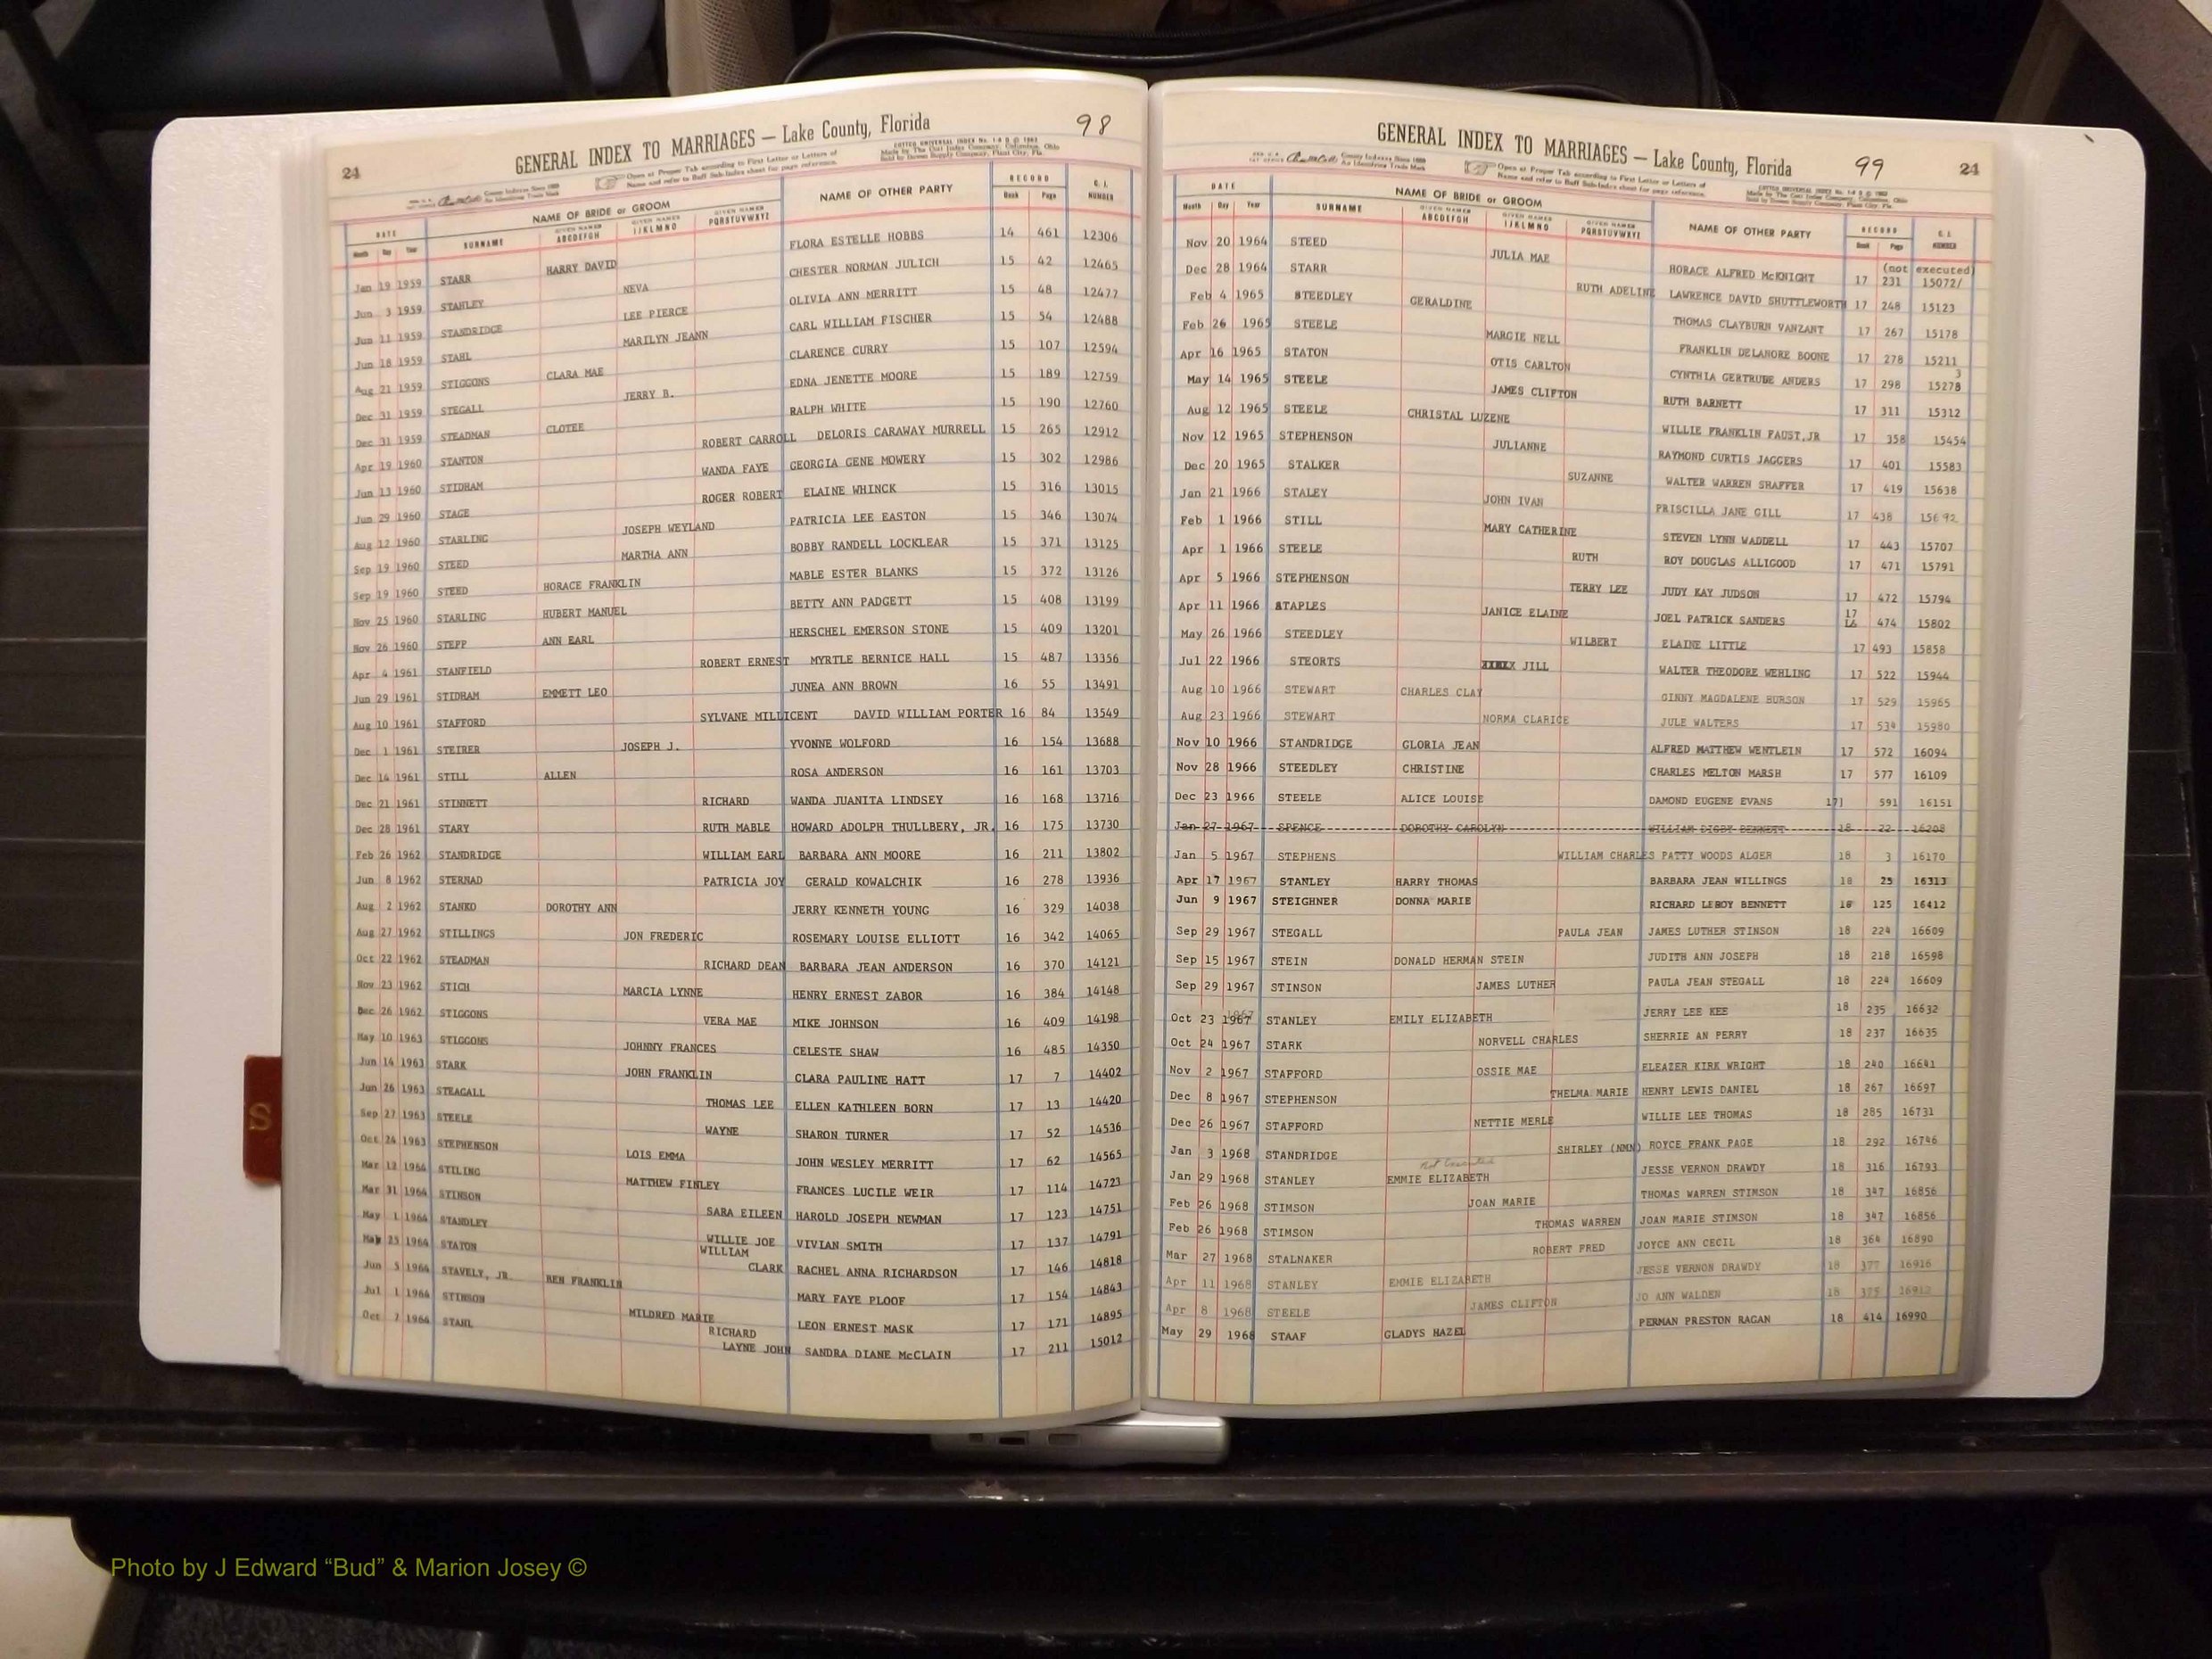 24
GENERAL INDEX TO MARRIAGES — Lake County, Florida
98
Open at Proper Tab according to First Letter or Letters of
Name and refer to Buff Sub-Index sheet for page reference.
DATE NAME OF BRIDE or GROOM NAME OF OTHER PARTY RECORD G. I. NUMBER
Month Day Year SURNAME GIVEN NAMES ABCDEFGH GIVEN NAMES IJKLMNO GIVEN NAMES PQRSTUVWXYZ Book Page
Jan 19 1959 STARR HARRY DAVID FLORA ESTELLE HOBBS 14 461 12306
Jun 3 1959 STANLEY NEVA CHESTER NORMAN JULICH 15 42 12465
Jun 11 1959 STANDRIDGE LEE PIERCE OLIVIA ANN MERRITT 15 48 12477
Jun 18 1959 STAHL MARILYN JEANN CARL WILLIAM FISCHER 15 54 12488
Aug 21 1959 STIGGONS CLARA MAE CLARENCE CURRY 15 107 12594
Dec 31 1959 STEGALL JERRY B. EDNA JENETTE MOORE 15 189 12759
Dec 31 1959 STEADMAN CLOTEE RALPH WHITE 15 190 12760
Apr 19 1960 STANTON ROBERT CARROLL DELORIS CARAWAY MURRELL 15 265 12912
Jun 13 1960 STIDHAM WANDA FAYE GEORGIA GENE MOWERY 15 302 12986
Jun 29 1960 STAGE ROGER ROBERT ELAINE WHINCK 15 316 13015
Aug 12 1960 STARLING JOSEPH WEYLAND PATRICIA LEE EASTON 15 346 13074
Sep 19 1960 STEED MARTHA ANN BOBBY RANDELL LOCKLEAR 15 371 13125
Sep 19 1960 STEED HORACE FRANKLIN MABLE ESTER BLANKS 15 372 13126
Nov 25 1960 STARLING HUBERT MANUEL BETTY ANN PADGETT 15 408 13199
Nov 26 1960 STEPP ANN EARL HERSCHEL EMERSON STONE 15 409 13201
Apr 4 1961 STANFIELD ROBERT ERNEST MYRTLE BERNICE HALL 15 487 13356
Jun 29 1961 STIDHAM EMMETT LEO JUNEA ANN BROWN 16 55 13491
Aug 10 1961 STAFFORD SYLVANE MILLICENT DAVID WILLIAM PORTER 16 84 13549
Dec 1 1961 STEIRER JOSEPH J. YVONNE WOLFORD 16 154 13688
Dec 14 1961 STILL ALLEN ROSA ANDERSON 16 161 13703
Dec 21 1961 STINNETT RICHARD WANDA JUANITA LINDSEY 16 168 13716
Dec 28 1961 STARY RUTH MABLE HOWARD ADOLPH THULLBERY, JR. 16 175 13730
Feb 26 1962 STANDRIDGE WILLIAM EARL BARBARA ANN MOORE 16 211 13802
Jun 8 1962 STERNAD PATRICIA JOY GERALD KOWALCHIK 16 278 13936
Aug 2 1962 STANKO DOROTHY ANN JERRY KENNETH YOUNG 16 329 14038
Aug 27 1962 STILLINGS JON FREDERIC ROSEMARY LOUISE ELLIOTT 16 342 14065
Oct 22 1962 STEADMAN RICHARD DEAN BARBARA JEAN ANDERSON 16 370 14121
Nov 23 1962 STICH MARCIA LYNNE HENRY ERNEST ZABOR 16 384 14148
Dec 26 1962 STIGGONS VERA MAE MIKE JOHNSON 16 409 14198
May 10 1963 STIGGONS JOHNNY FRANCES CELESTE SHAW 16 485 14350
Jun 14 1963 STARK JOHN FRANKLIN CLARA PAULINE HATT 17 7 14402
Jun 26 1963 STEAGALL THOMAS LEE ELLEN KATHLEEN BORN 17 13 14420
Sep 27 1963 STEELE WAYNE SHARON TURNER 17 52 14536
Oct 24 1963 STEPHENSON LOIS EMMA JOHN WESLEY MERRITT 17 62 14565
Mar 12 1964 STILING MATTHEW FINLEY FRANCES LUCILE WEIR 17 114 14723
Mar 31 1964 STINSON SARA EILEEN HAROLD JOSEPH NEWMAN 17 123 14751
May 1 1964 STANDLEY WILLIE JOE VIVIAN SMITH 17 137 14791
May 25 1964 STATON WILLIAM CLARK RACHEL ANNA RICHARDSON 17 146 14818
Jun 5 1964 STAVELY, JR. BEN FRANKLIN MARY FAYE PLOOF 17 154 14843
Jul 1 1964 STINSON MILDRED MARIE LEON ERNEST MASK 17 171 14895
Oct 7 1964 STAHL RICHARD LAYNE JOHN SANDRA DIANE McCLAIN 17 211 15012
GENERAL INDEX TO MARRIAGES — Lake County, Florida
99
24
Open at Proper Tab according to First Letter or Letters of
Name and refer to Buff Sub-Index sheet for page reference.
DATE NAME OF BRIDE or GROOM NAME OF OTHER PARTY RECORD G. I. NUMBER
Month Day Year SURNAME GIVEN NAMES ABCDEFGH GIVEN NAMES IJKLMNO GIVEN NAMES PQRSTUVWXYZ Book Page
Nov 20 1964 STEED JULIA MAE HORACE ALFRED McKNIGHT 17 231 (not executed) 15072/
Dec 28 1964 STARR RUTH ADELINE LAWRENCE DAVID SHUTTLEWORTH 17 248 15123
Feb 4 1965 STEEDLEY GERALDINE THOMAS CLAYBURN VANZANT 17 267 15178
Feb 26 1965 STEELE MARGIE NELL FRANKLIN DELANORE BOONE 17 278 15211
Apr 16 1965 STATON OTIS CARLTON CYNTHIA GERTRUDE ANDERS 17 298 3 15278
May 14 1965 STEELE JAMES CLIFTON RUTH BARNETT 17 311 15312
Aug 12 1965 STEELE CHRISTAL LUZENE WILLIE FRANKLIN FAUST,JR 17 358 15454
Nov 12 1965 STEPHENSON JULIANNE RAYMOND CURTIS JAGGERS 17 401 15583
Dec 20 1965 STALKER SUZANNE WALTER WARREN SHAFFER 17 419 15638
Jan 21 1966 STALEY JOHN IVAN PRISCILLA JANE GILL 17 438 15692
Feb 1 1966 STILL MARY CATHERINE STEVEN LYNN WADDELL 17 443 15707
Apr 1 1966 STEELE RUTH ROY DOUGLAS ALLIGOOD 17 471 15791
Apr 5 1966 STEPHENSON TERRY LEE JUDY KAY JUDSON 17 472 15794
Apr 11 1966 STAPLES JANICE ELAINE JOEL PATRICK SANDERS 17 474 15802
May 26 1966 STEEDLEY WILBERT ELAINE LITTLE 17 493 15858
Jul 22 1966 STEORTS JILL WALTER THEODORE WEHLING 17 522 15944
Aug 10 1966 STEWART CHARLES CLAY GINNY MAGDALENE BURSON 17 529 15965
Aug 23 1966 STEWART NORMA CLARICE JULE WALTERS 17 534 15980
Nov 10 1966 STANDRIDGE GLORIA JEAN ALFRED MATTHEW WENTLEIN 17 572 16094
Nov 28 1966 STEEDLEY CHRISTINE CHARLES MELTON MARSH 17 577 16109
Dec 23 1966 STEELE ALICE LOUISE DAMOND EUGENE EVANS 17] 591 16151
Jan 27 1967 SPENCE DOROTHY CAROLYN WILLIAM DIGBY BENNETT 18 22 16208
Jan 5 1967 STEPHENS WILLIAM CHARLES PATTY WOODS ALGER 18 3 16170
Apr 17 1967 STANLEY HARRY THOMAS BARBARA JEAN WILLINGS 18 25 16313
Jun 9 1967 STEIGHNER DONNA MARIE RICHARD LEROY BENNETT 18 125 16412
Sep 29 1967 STEGALL PAULA JEAN JAMES LUTHER STINSON 18 224 16609
Sep 15 1967 STEIN DONALD HERMAN STEIN JUDITH ANN JOSEPH 18 218 16598
Sep 29 1967 STINSON JAMES LUTHER PAULA JEAN STEGALL 18 224 16609
Oct 23 1967 STANLEY EMILY ELIZABETH JERRY LEE KEE 18 235 16632
Oct 24 1967 STARK NORVELL CHARLES SHERRIE AN PERRY 18 237 16635
Nov 2 1967 STAFFORD OSSIE MAE ELEAZER KIRK WRIGHT 18 240 16641
Dec 8 1967 STEPHENSON THELMA MARIE HENRY LEWIS DANIEL 18 267 16697
Dec 26 1967 STAFFORD NETTIE MERLE WILLIE LEE THOMAS 18 285 16731
Jan 3 1968 STANDRIDGE SHIRLEY (NMN) ROYCE FRANK PAGE 18 292 16746
Not Executed
Jan 29 1968 STANLEY EMMIE ELIZABETH JESSE VERNON DRAWDY 18 316 16793
Feb 26 1968 STIMSON JOAN MARIE THOMAS WARREN STIMSON 18 347 16856
Feb 26 1968 STIMSON THOMAS WARREN JOAN MARIE STIMSON 18 347 16856
Mar 27 1968 STALNAKER ROBERT FRED JOYCE ANN CECIL 18 364 16890
Apr 11 1968 STANLEY EMMIE ELIZABETH JESSE VERNON DRAWDY 18 377 16916
Apr 8 1968 STEELE JAMES CLIFTON JO ANN WALDEN 18 375
May 29 1968 STAAF GLADYS HAZEL PERMAN PRESTON RAGAN 18 414 16990
S
Photo by J Edward “Bud” & Marion Josey ©